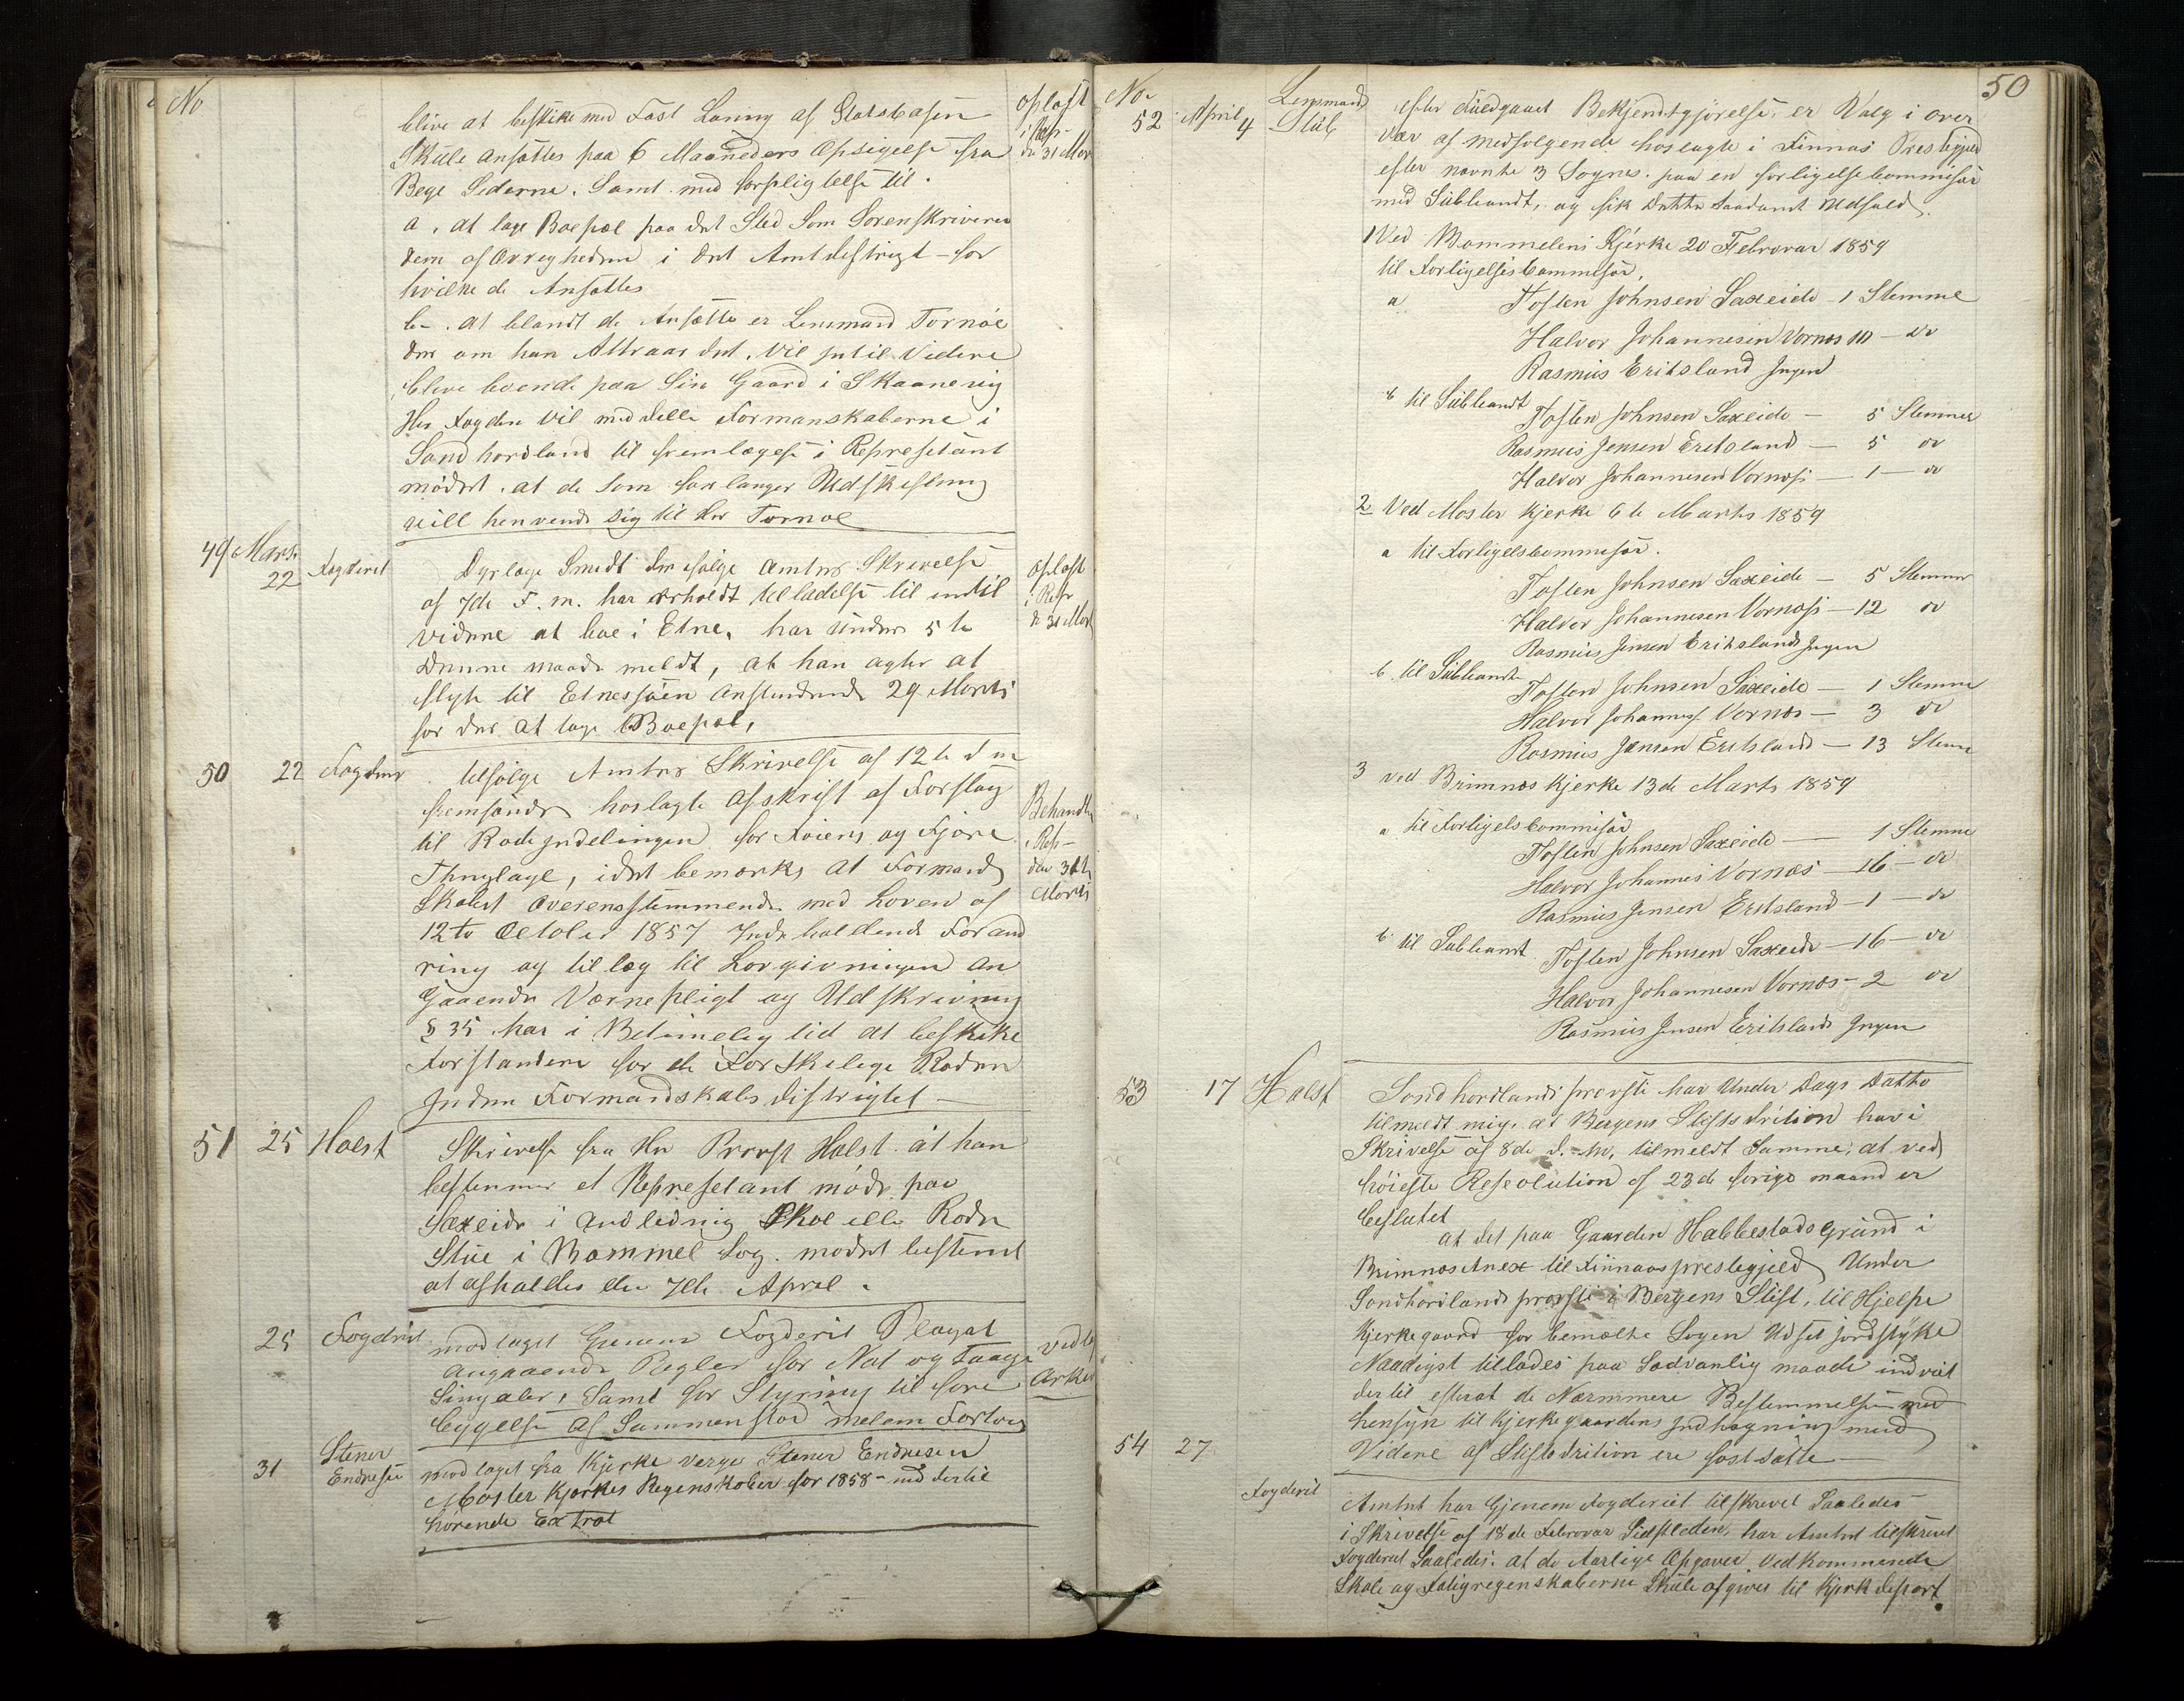 No
blive at beskike med Fast Lønning af Statskasen
Skule Ansættes paa 6 Maaneders Opsigelse fra
Bege Siderne. Samt med forpligtelse til.
a. at tage Boepæl paa det Sted Som Sorenskriveren
dem af Øvrigheden i det Amtdistrigt for
hvilke de Ansættes
b. at blandt de Ansatte er Lensmand Tornøe
der om han Attraar det, Vil intil Videre
blive boende paa Sin Gaard i Skaanevig
Her Fogden Vil meddelle Formanskaberne i
Søndhordland til fremlægelse i Represetant
mødet. at de Som forlanger Udskiftning
vill henvende sig til Hr Tornøe
oplæst
i Rep-
de 31 Mar
49 Mars. 22 Fogderiet
Dyrlæge Smedt der ifølge Amtets Skrivelse
af 7de F. m. har erholdt telladelse til indtil
videre at boe i Etne, har under 5te
Denne maade meldt, at han agter at
flyte til Etnessøen Anstundende 29 Marts
for der at tage Boepæl,
oplæst
i Repr
d 31 Mart
50 22 Fogden
tilfølge Amtets Skrivelse af 12te d m
fremsendes hoslagte Afskrift af Forslag
til Rodeinddelingen for Føiens og Fjære
Thinglage, idet bemærkes at Formand
Skabet Overensstemmende med Loven af
12te October 1857 Indeholdende Forand
ring og tillæg til Lovgivningen An
Gaaende Værnepligt og Udskrivning
§ 35 har i Betimelig tid at beskike
Forstandere for de Forskelige Roder
Inden Formandskabs distrigtet
Behandlet
i Rep-
den 31te
Marts
51 25 Holst
Skrivelse fra Hr Provst Holst. at han
bestemmer et Represetant møde paa
Sæxeide i Andledning Skoe elle Rode
Stue i Bømmel Sog. mødet bestemt
at afholdes den 7de April.
25 Fogderiet
modtaget Gienem Fogderiet Placat
angaaende Regler for Nat og Taage
Singaler, Samt for Styring til fore
bygelse af Sammenstød melem Fartøy
31 Stener Endresen
modtaget fra Kjerke verge Stener Endresen
Moster Kjerkes Regenskaber for 1858 - med dertil
hørende Extrat
50
No
52 April 4 Lensmand Stüb
efter fuldgaaet Bekjendtgjørelse, er Valg i over
vær af medfølgende hoslagte i Finnaas Prestegjeld
efter nævnte 3 Sogne. paa en forligelsecommisær
med Subleandt, og fik dette Saadant Udfald.
1 Ved Bømmelens Kjerke 20 Februar 1859
til Forligelsescommisær.
a Tosten Johnsen Saxeide - 1 Stemme
Halvor Johannesen Vornæs 10 - do
Rasmus Eritsland Ingen
b til Subleandt
Tosten Johnsen Saxeide - 5 Stemmer
Rasmus Jensen Eritsland - 5 do
Halvor Johannesen Vornæs - 1 - do
2 Ved Moster Kjerke 6te Marts 1859
a til Forligelscommisær.
Tosten Johnsen Saxeide - 5 Stemmer
Halvor Johannesen Vornæs - 12 do
Rasmus Jensen Eritsland Ingen
b. til Subleandt
Tosten Johnsen Saxeide - 1 Stemme
Halvor Johannes Vornæs - 3 do
Rasmus Jensen Eritsland - 13 Stemme
3 ved Brimnæs Kjerke 13de Marts 1859
a til Forligelscommisær
Tosten Johnsen Saxeide - 1 Stemme
Halvor Johannes Vornæs - 16 - do
Rasmus Jensen Eritsland - 1 - do
b til Subleandt
Tosten Johnsen Saxeide - 16 - do
Halvor Johannesen Vornæs - 2 do
Rasmus Jensen Eritsland Ingen
53 17 Holst
Søndhordlands provsti har Under Dags Datto
tilmeldt mig. at Bergens Stiftsdrition har i
Skrivelse af 8de d. m. tilmeldt Samme, at ved
høieste Reseolution af 23de forige maand er
beslutet
at det paa Gaarden Habbestads Grund i
Brimnæs Anext til Finnaas prestegjeld Under
Søndhordlands provsti i Bergens Stift, til Hjelpe
Kjerkegaard for bemælte Sogen Udset jordstyke
Naadigst tillades paa Sædvanlig maade indviet
dertil efterat de Nærmmere Bestemmelser med
hensyn til Kjerkegaardens Indhegning med
Videre af Stiftsdrition ere fastsatte
54 27 Fogderiet
Amtet har Gjenem Fogderiet tilskrevet Saaledes
i Skrivelse af 18de Februar Sidstleden, har Amtet tilskrevet
Fogderiet Saaledes: at de Aarlige Opgaver Vedkommende
Skole og Fatigregenskaberne Skule afgives til Kjerkedepart